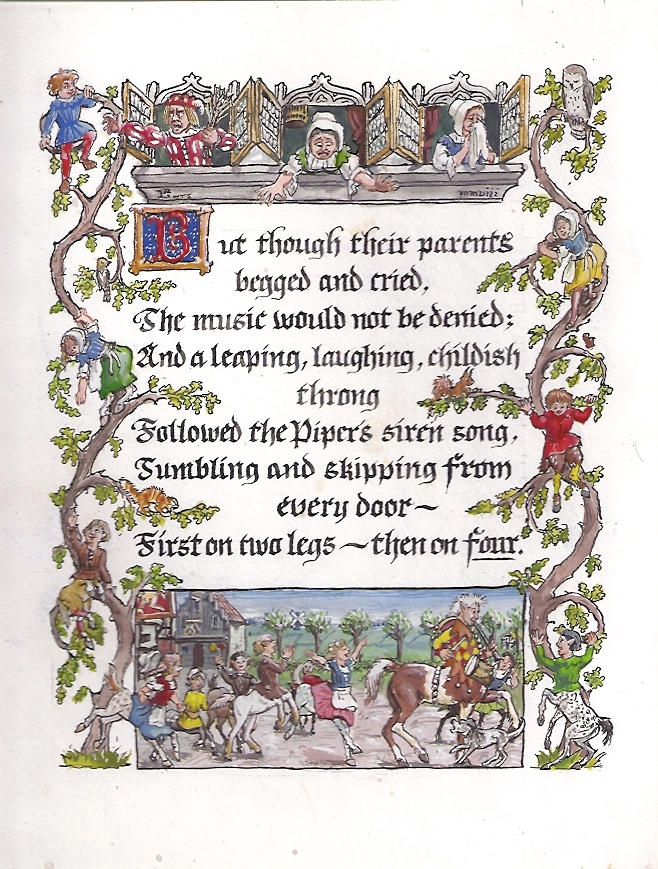 But though their parents
begged and cried,
The music would not be denied;
And a leaping, laughing, childish
throng
Followed the Piper's siren song,
Tumbling and skipping from
every door~
First on two legs ~ then on four.